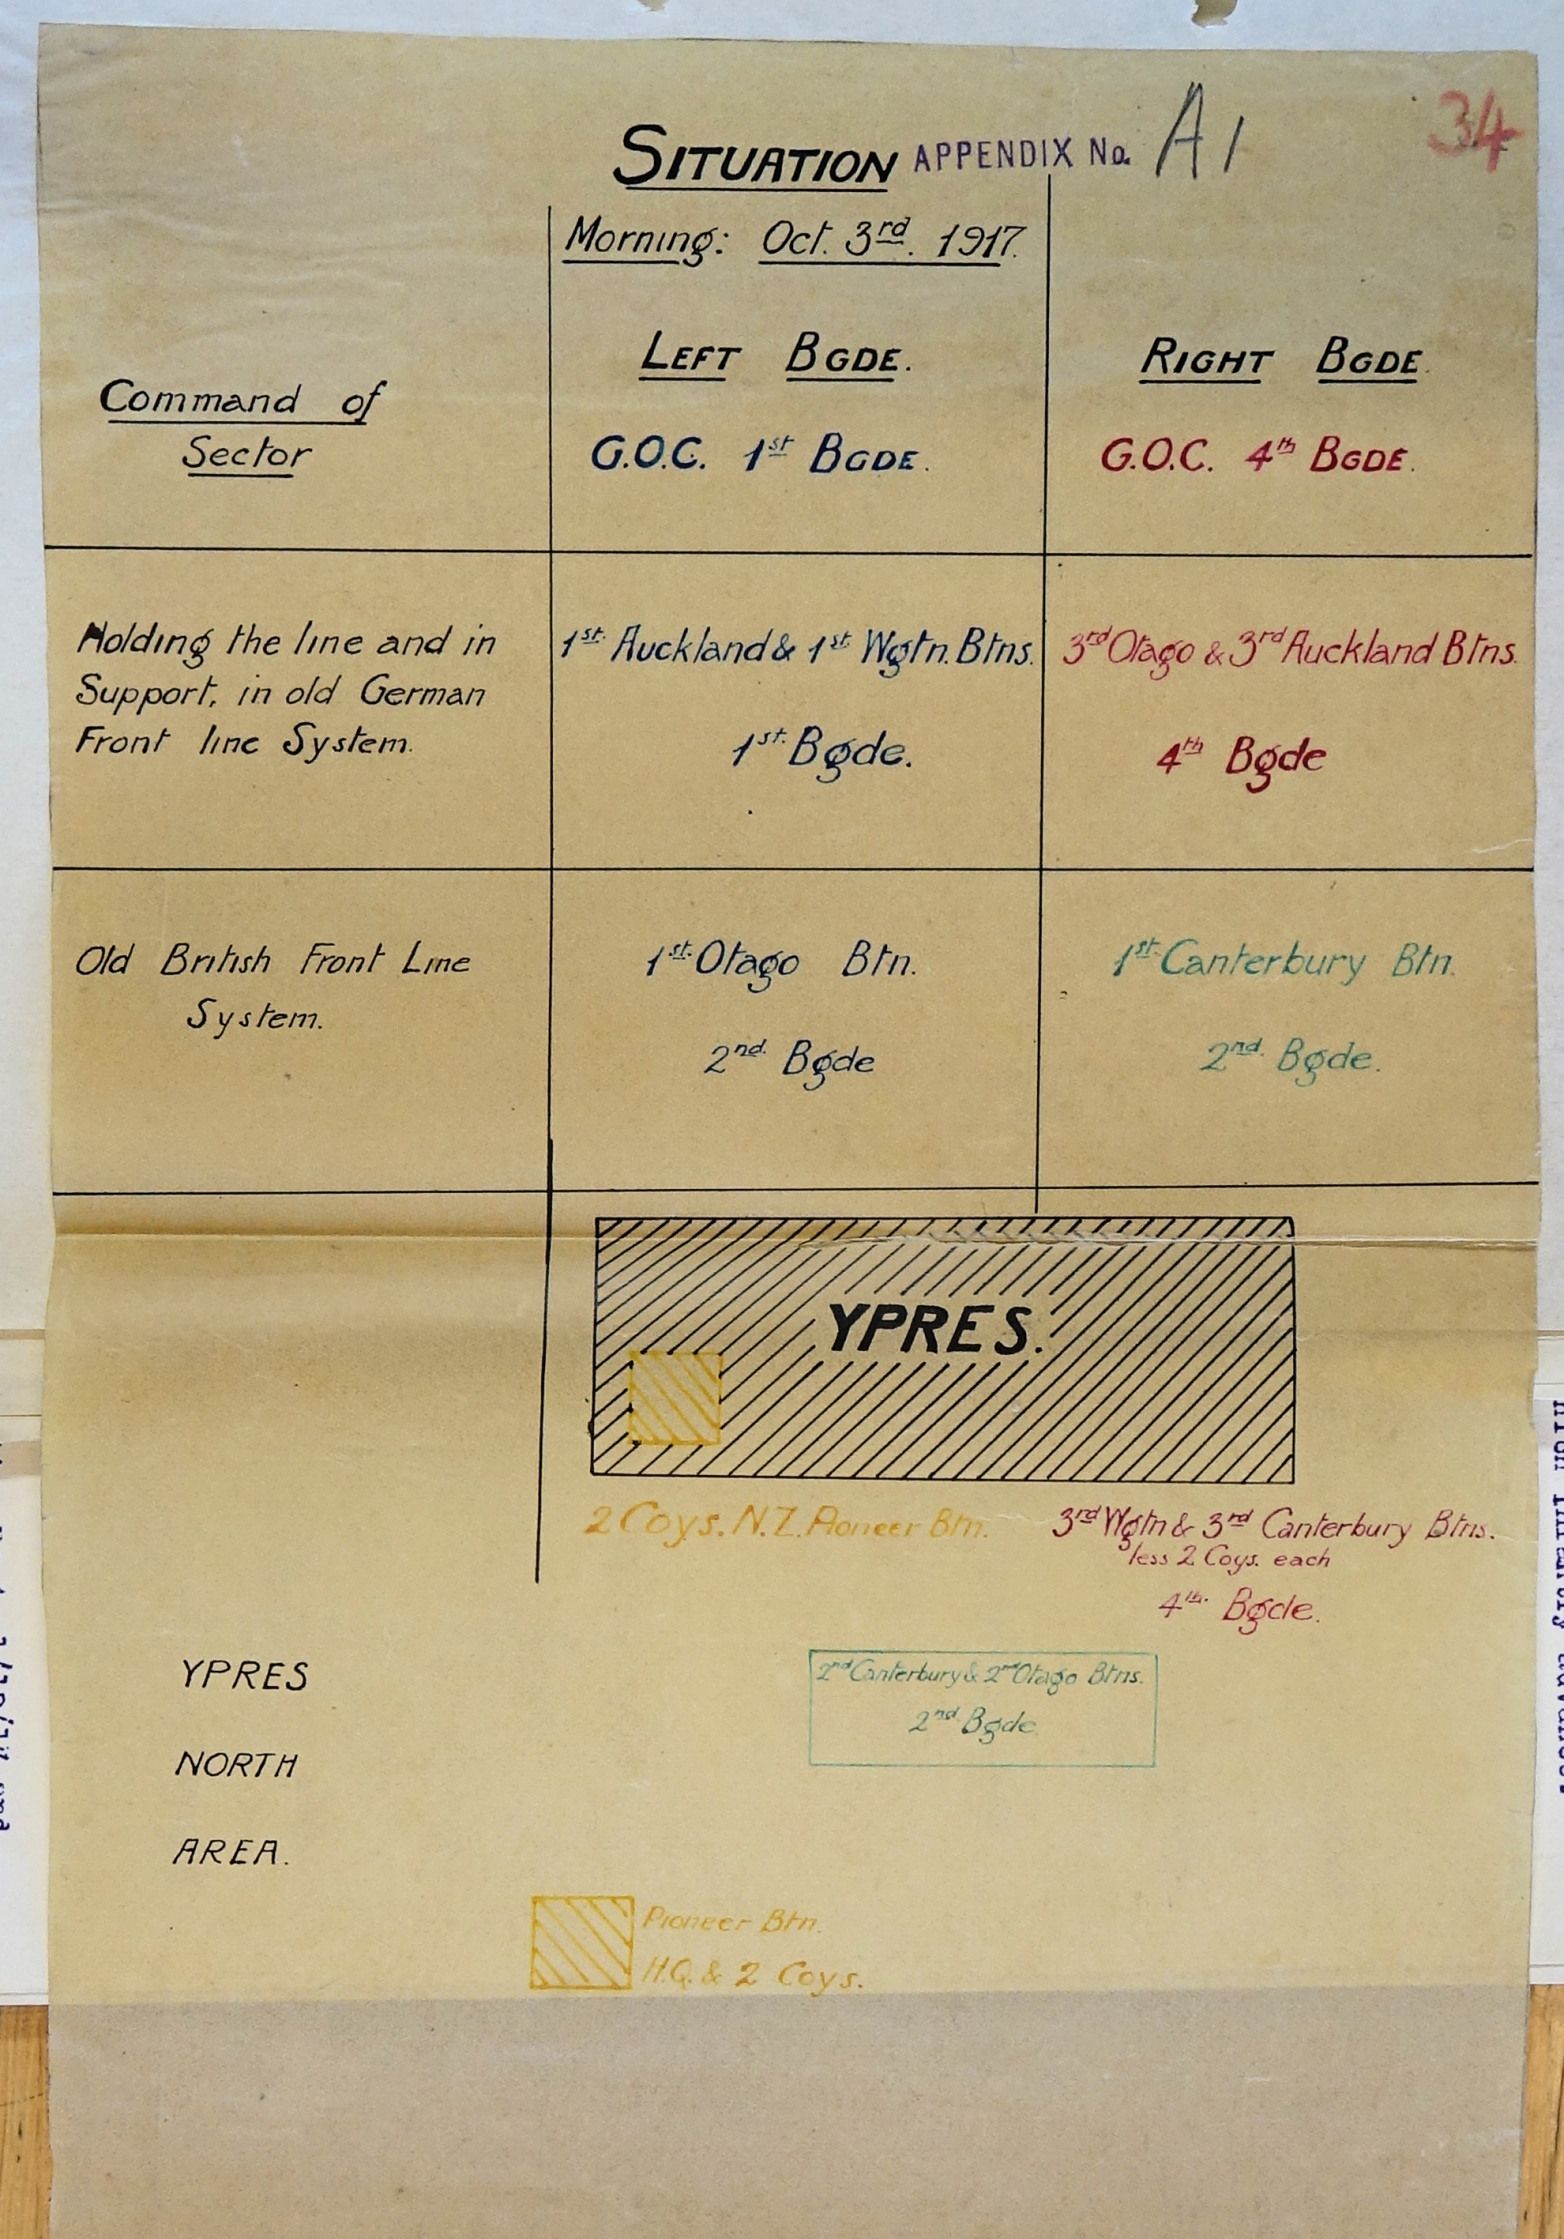 34
SITUATION APPENDIX No. A1
Morning: Oct. 3rd. 1917.
Command of
Sector
LEFT BGDE.
G.O.C. 1st BGDE.
RIGHT BGDE.
G.O.C. 4th BGDE.
Holding the line and in
Support, in old German
Front line System.
1st. Auckland & 1st. Wgtn. Btns.
1st. Bgde.
3rd Otago & 3rd Auckland Btns.
4th Bgde
Old British Front Line
System.
1st. Otago Btn.
2nd. Bgde
1st. Canterbury Btn.
2nd. Bgde.
YPRES.
2 Coys. N.Z. Pioneer Btn.
3rd Wgtn & 3rd Canterbury Btns.
less 2 Coys. each
4th. Bgde.
YPRES
NORTH
AREA.
2nd Canterbury & 2nd Otago Btns.
2nd. Bgde
Pioneer Btn.
H.Q. & 2 Coys.